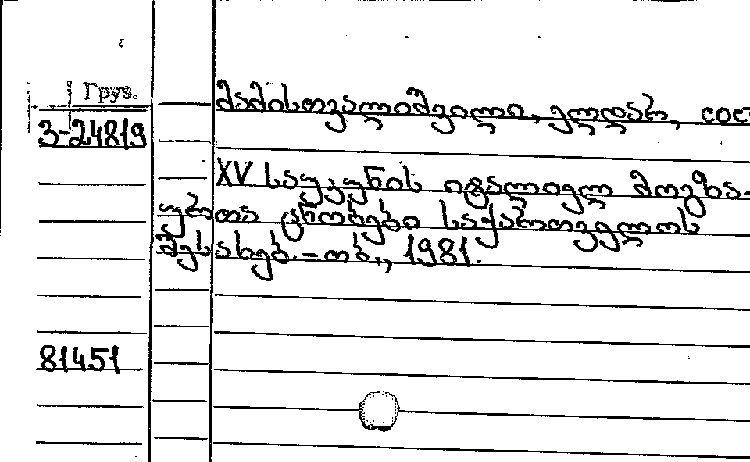 Груз.
მამისთვალიშვილი, ელდარ,
3-24819
XV საუკუნის იტალიელ მოგზა-
ურთა ცნობები საქართველოს
შესახებ. - თბ., 1981.
81451